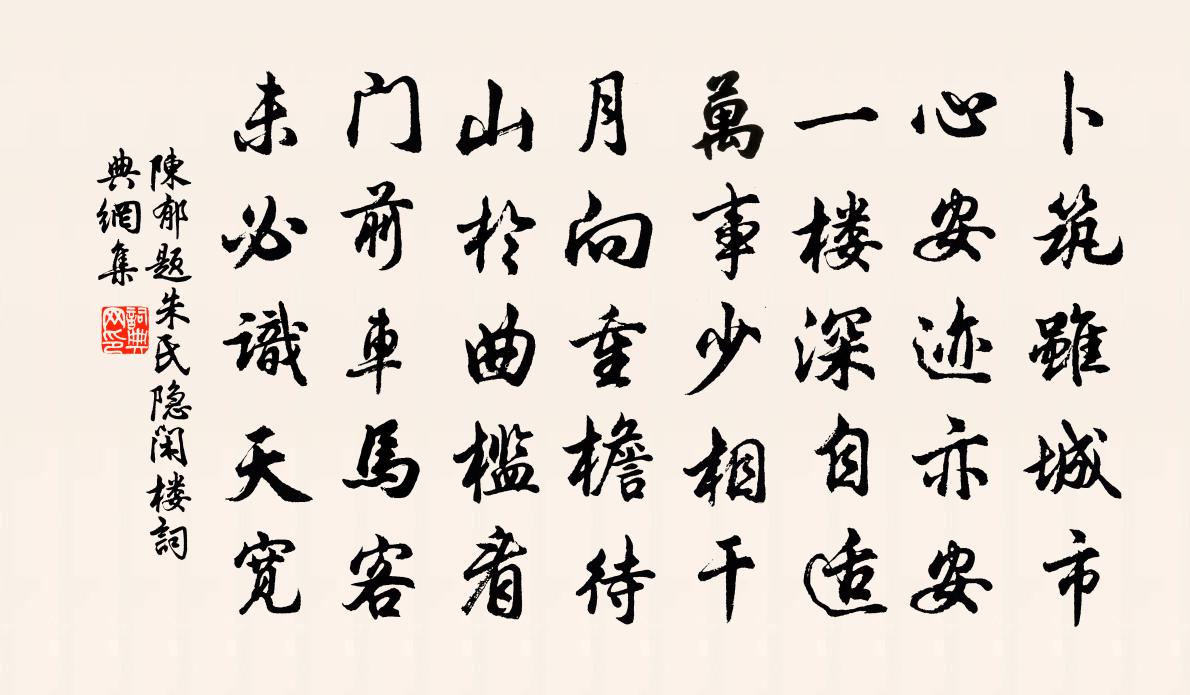 卜筑雖城市
心安迹亦安
一楼深自适
萬事少相干
月向重檐待
山於曲檻看
门前車馬客
未必識天宽
陳郁题朱氏隐閑楼詞
典網集
詞典
网印